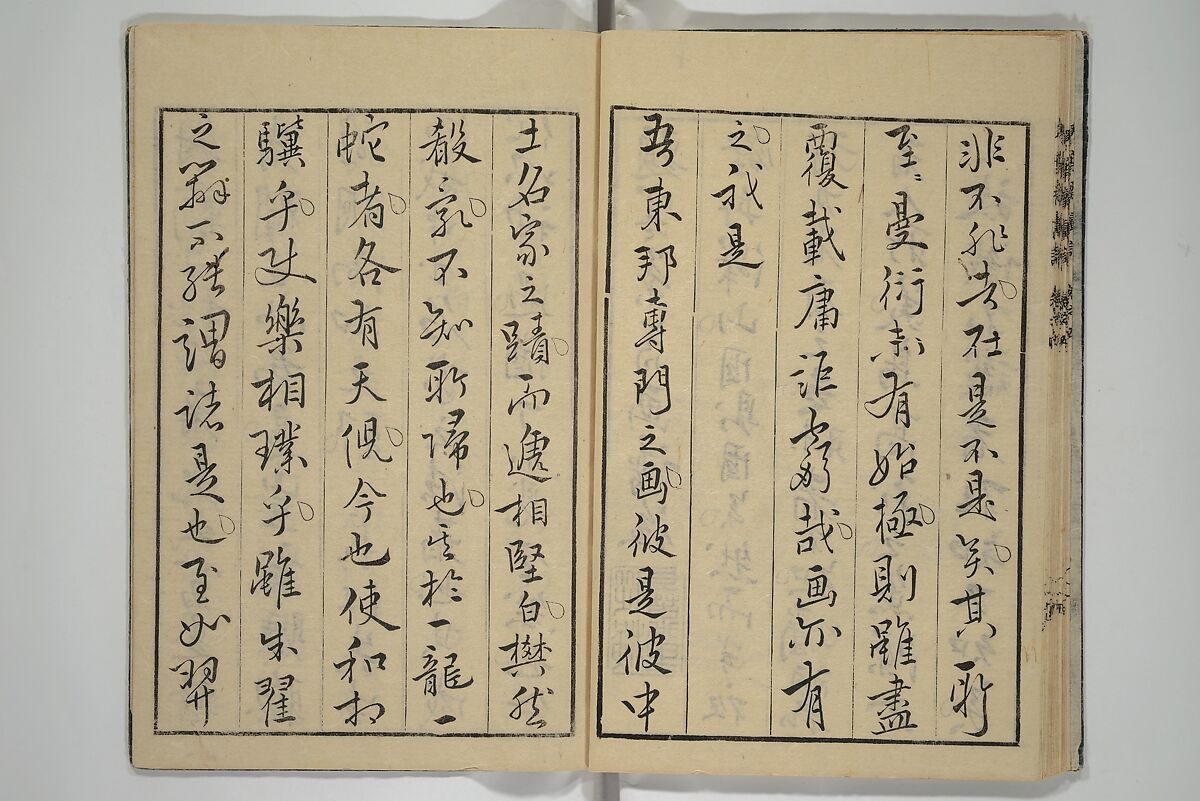 非不非者在是不是矣其所
至々曼衍未有始極則雖盡
覆載庸詎窮哉画亦有
之我是
吾東邦専門之画彼是彼中
土名家之蹟而遞相堅白樊然
殽乱不知所帰也其於一龍一
蛇者各有天倪今也使和扣
驥乎史樂相璞乎雖朱翟
之辯不能謂諸是也至如羿